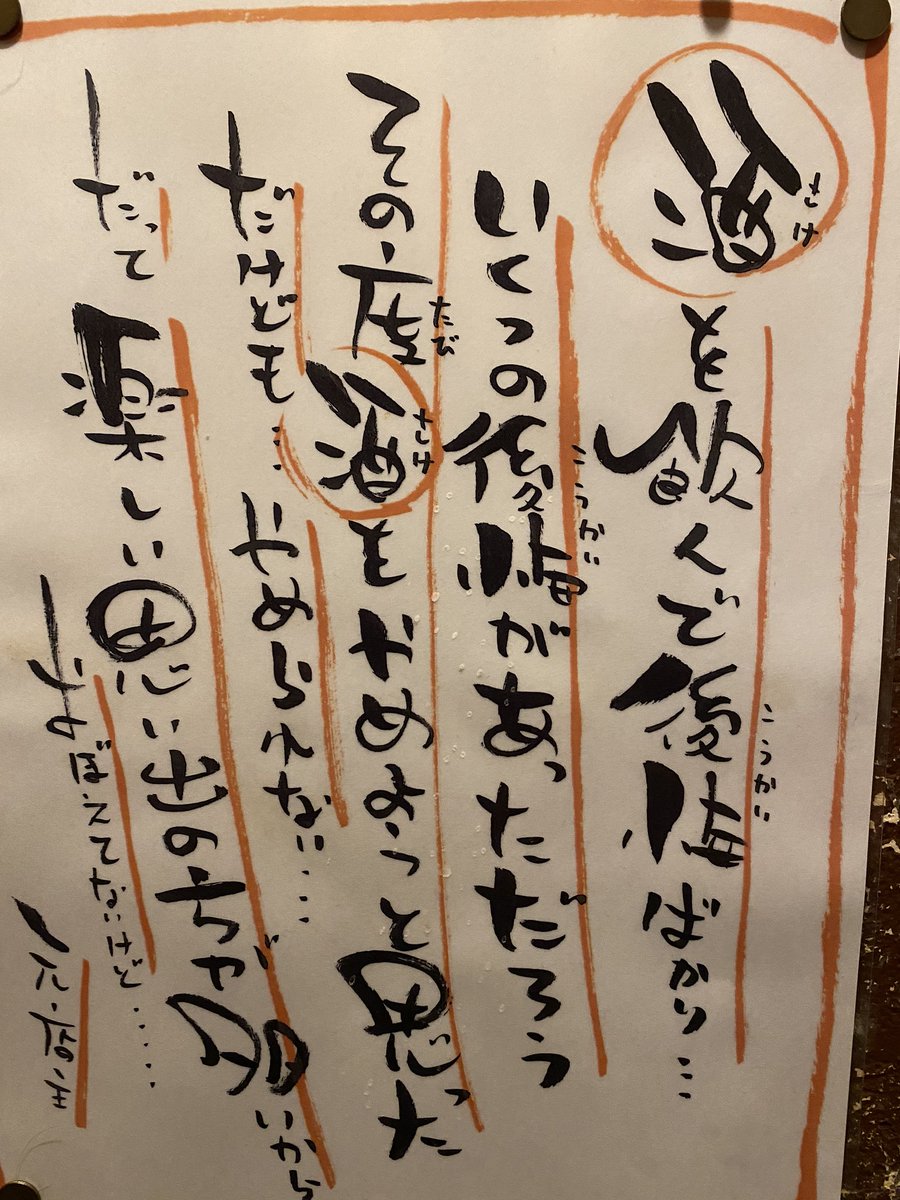 酒を飲んで後悔ばかり…
さけ
こうかい
いくつの後悔があっただろう
こうかい
その度酒をやめようと思った
たび
さけ
だけども…やめられない…
―だって楽しい思い出の方が多いから
―おぼえてないけど……
―元・店主